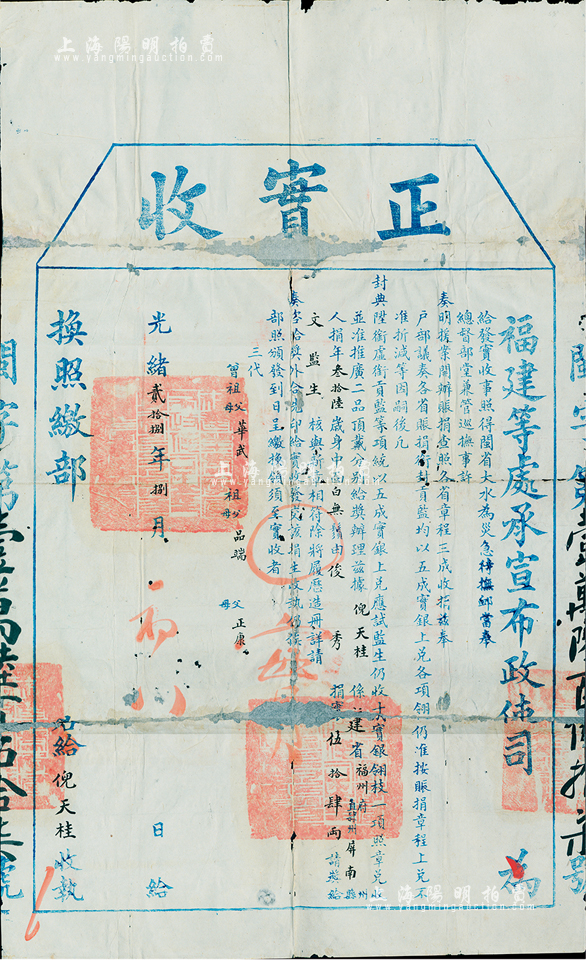 上海陽明拍賣
www.yangmingauction.com
正實收
福建等處承宣布政使司 為
給發實收事照得閩省大水為災急待撫卹當奉
總督部堂兼管巡撫事許
奏明援案開辦賑捐查照各省章程三成收捐茲奉
戶部議奏各省賑捐銜封貢監均以五成實銀上兌各項翎仍准按賑捐章程上兌不
准折減等因嗣後凡
封典陞銜虛銜貢監等項統以五成實銀上兌應試監生仍收十大實銀翎枝一項照章兌收
並准推廣二品頂戴分別給獎辦理茲據 倪天桂 係福建省福州府直隸州屏南縣州
人捐年叁拾陸歲身中面白無鬚由俊秀捐實銀伍拾肆兩請獎給
文監生 核與 相符除將履歷造冊詳請
奏咨給獎外合先印給實收發交該捐生收執仍俟
部照頒發到日呈繳換領須至實收者
三代
曾祖父母 華武 祖父母 品端 父母 正康
光緒貳拾捌年捌月 日給
右給倪天桂收執
換照繳部
閩字第
上海陽明拍賣
www.yangmingauction.com